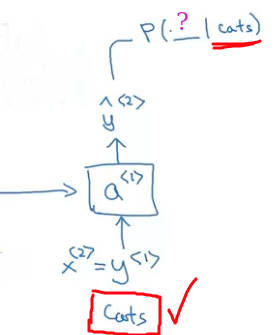 P(.?__|cats)
ŷ<2>
a<1>
x<2>=y<1>
Cats